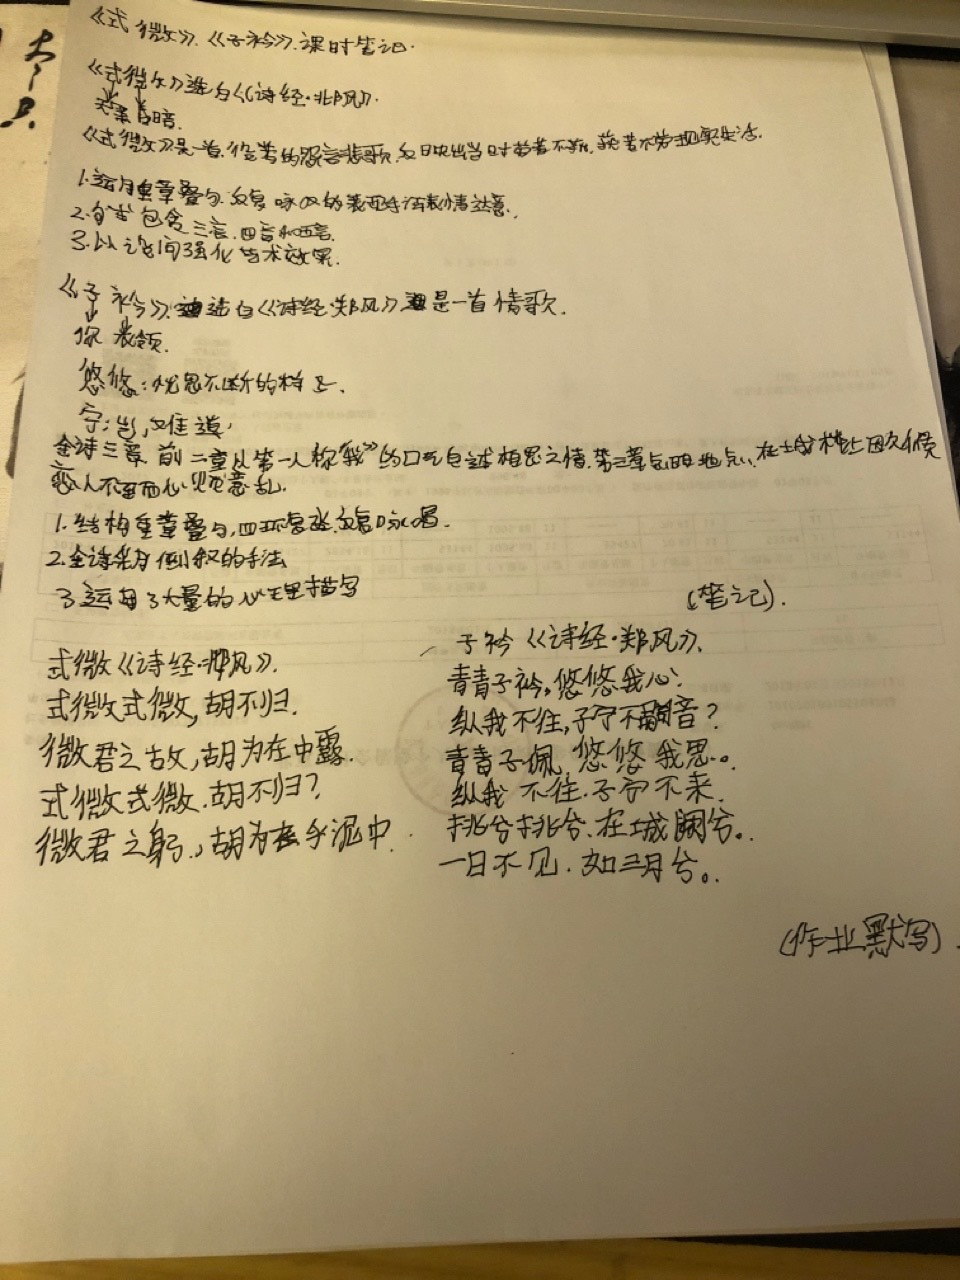 《式微》、《子衿》课时笔记.
《式微》选自《诗经·邶风》.
天黑
《式微》是一首 的怨言悲歌,反映出当时劳者不获,获者不劳现实生活.
1.运用重章叠句.反复咏叹的表现手法表情达意.
2.句式包含三言.四言和五言.
3.以设问强化艺术效果.
《子衿》.选自《诗经·郑风》是一首情歌.
你 衣领.
悠悠:忧思不断的样子.
宁:岂,难道.
全诗三章 前二章以第一人称“我”的口气自述相思之情.第三章点明地点、在城楼上因久候
恋人不至而心烦意乱.
1.结构重章叠句, 反复咏唱.
2.全诗采用倒叙的手法
3.运用了大量的心理描写
(笔记).
式微《诗经·邶风》.
式微式微,胡不归.
微君之故,胡为在中露.
式微式微.胡不归?
微君之躬.,胡为 泥中.
子衿《诗经·郑风》.
青青子衿,悠悠我心.
纵我不往,子宁不嗣音?
青青子佩,悠悠我思。.
纵我不往.子宁不来.
挑兮挑兮.在城阙兮。.
一日不见.如三月兮。.
(作业默写).